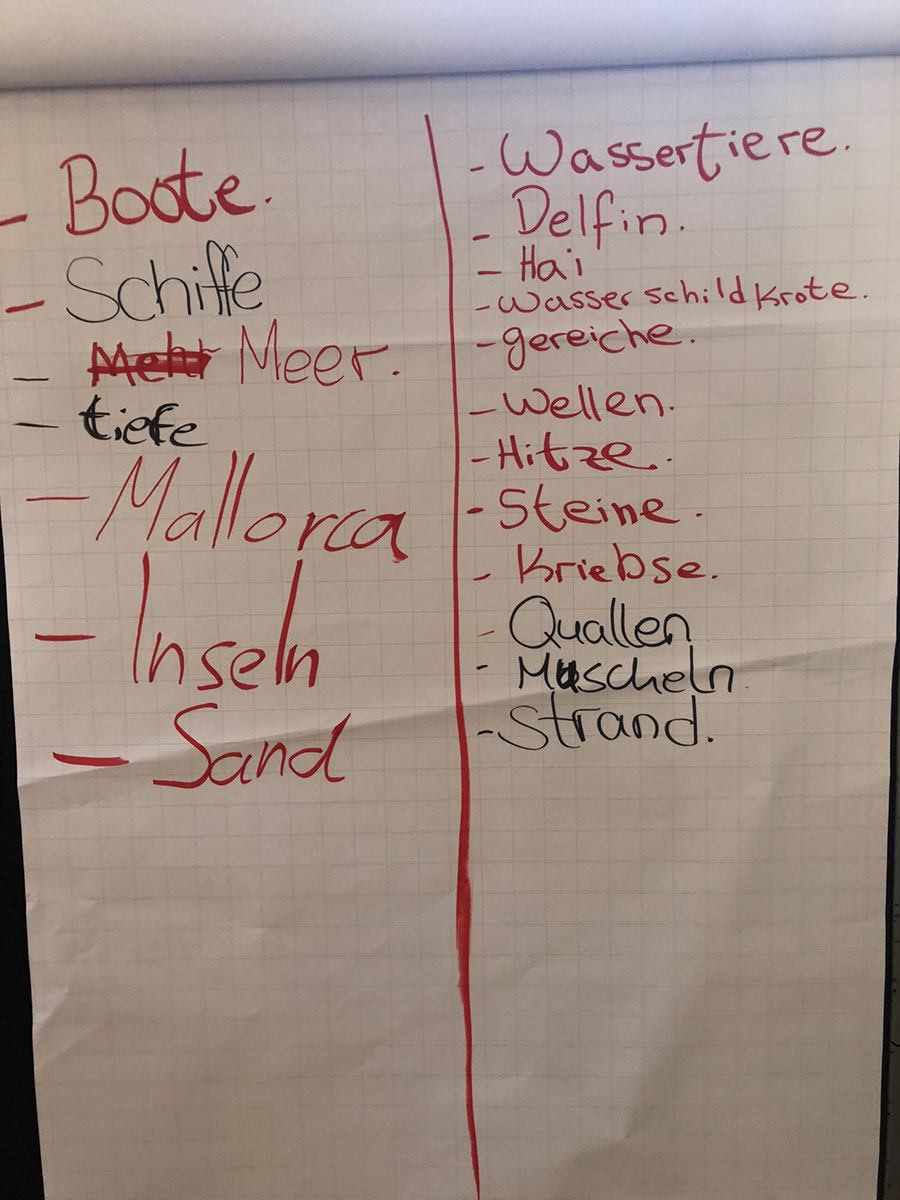 - Boote.
- Schiffe
- Mehr Meer.
- tiefe
- Mallorca
- Inseln
- Sand
- Wassertiere.
- Delfin.
- Hai
- wasserschildkrote.
- gereiche.
- Wellen.
- Hitze.
- Steine.
- Kriebse.
- Quallen
- Muscheln.
- Strand.